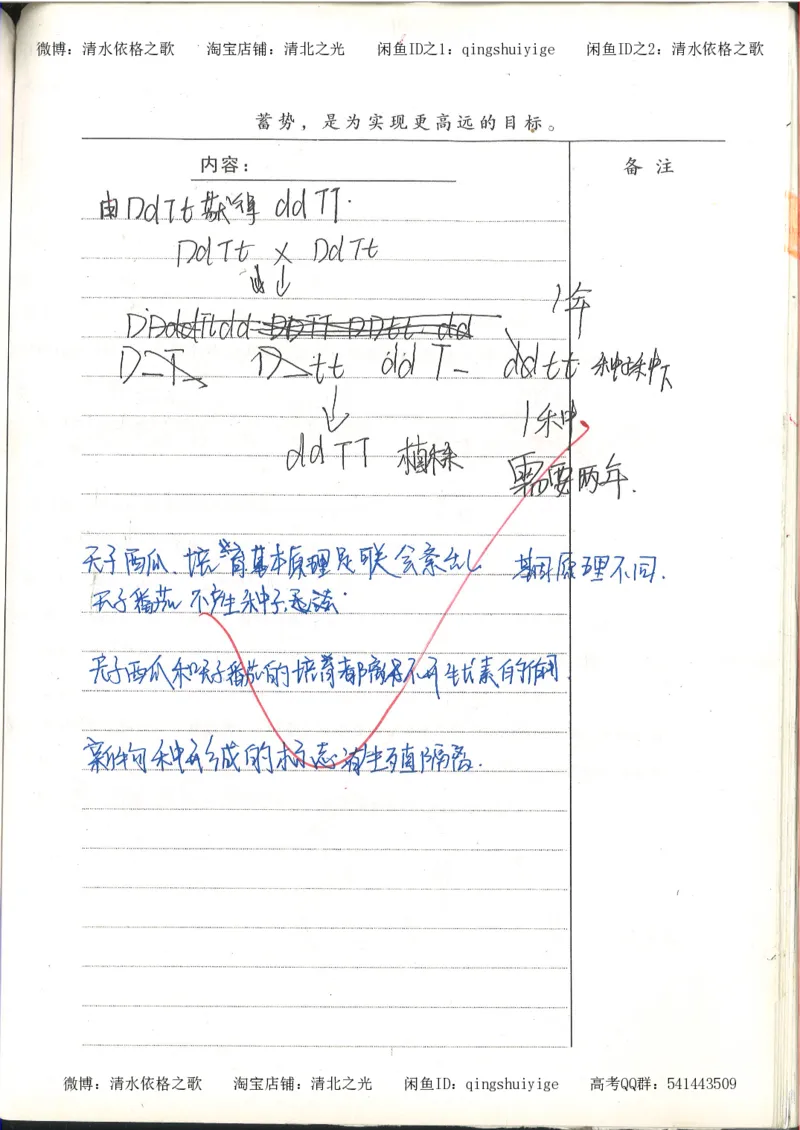 微博：清水依格之歌 淘宝店铺：清北之光 闲鱼ID之1：qingshuiyige 闲鱼ID之2：清水依格之歌
蓄势，是为实现更高远的目标。
内容：
备 注
由DdTt获得 ddTT.
DdTt × DdTt
1年
D_T_ D_tt ddT_ ddtt 种
ddTT 植株 1种
需要两年.
无子西瓜、培育基本原理是联会紊乱 基因原理不同.
无子番茄 不产生种子
无子西瓜和无子番茄的培育都离不开生长素的作用.
新物种形成的标志有生殖隔离.
微博：清水依格之歌 淘宝店铺：清北之光 闲鱼ID：qingshuiyige 高考QQ群：541443509